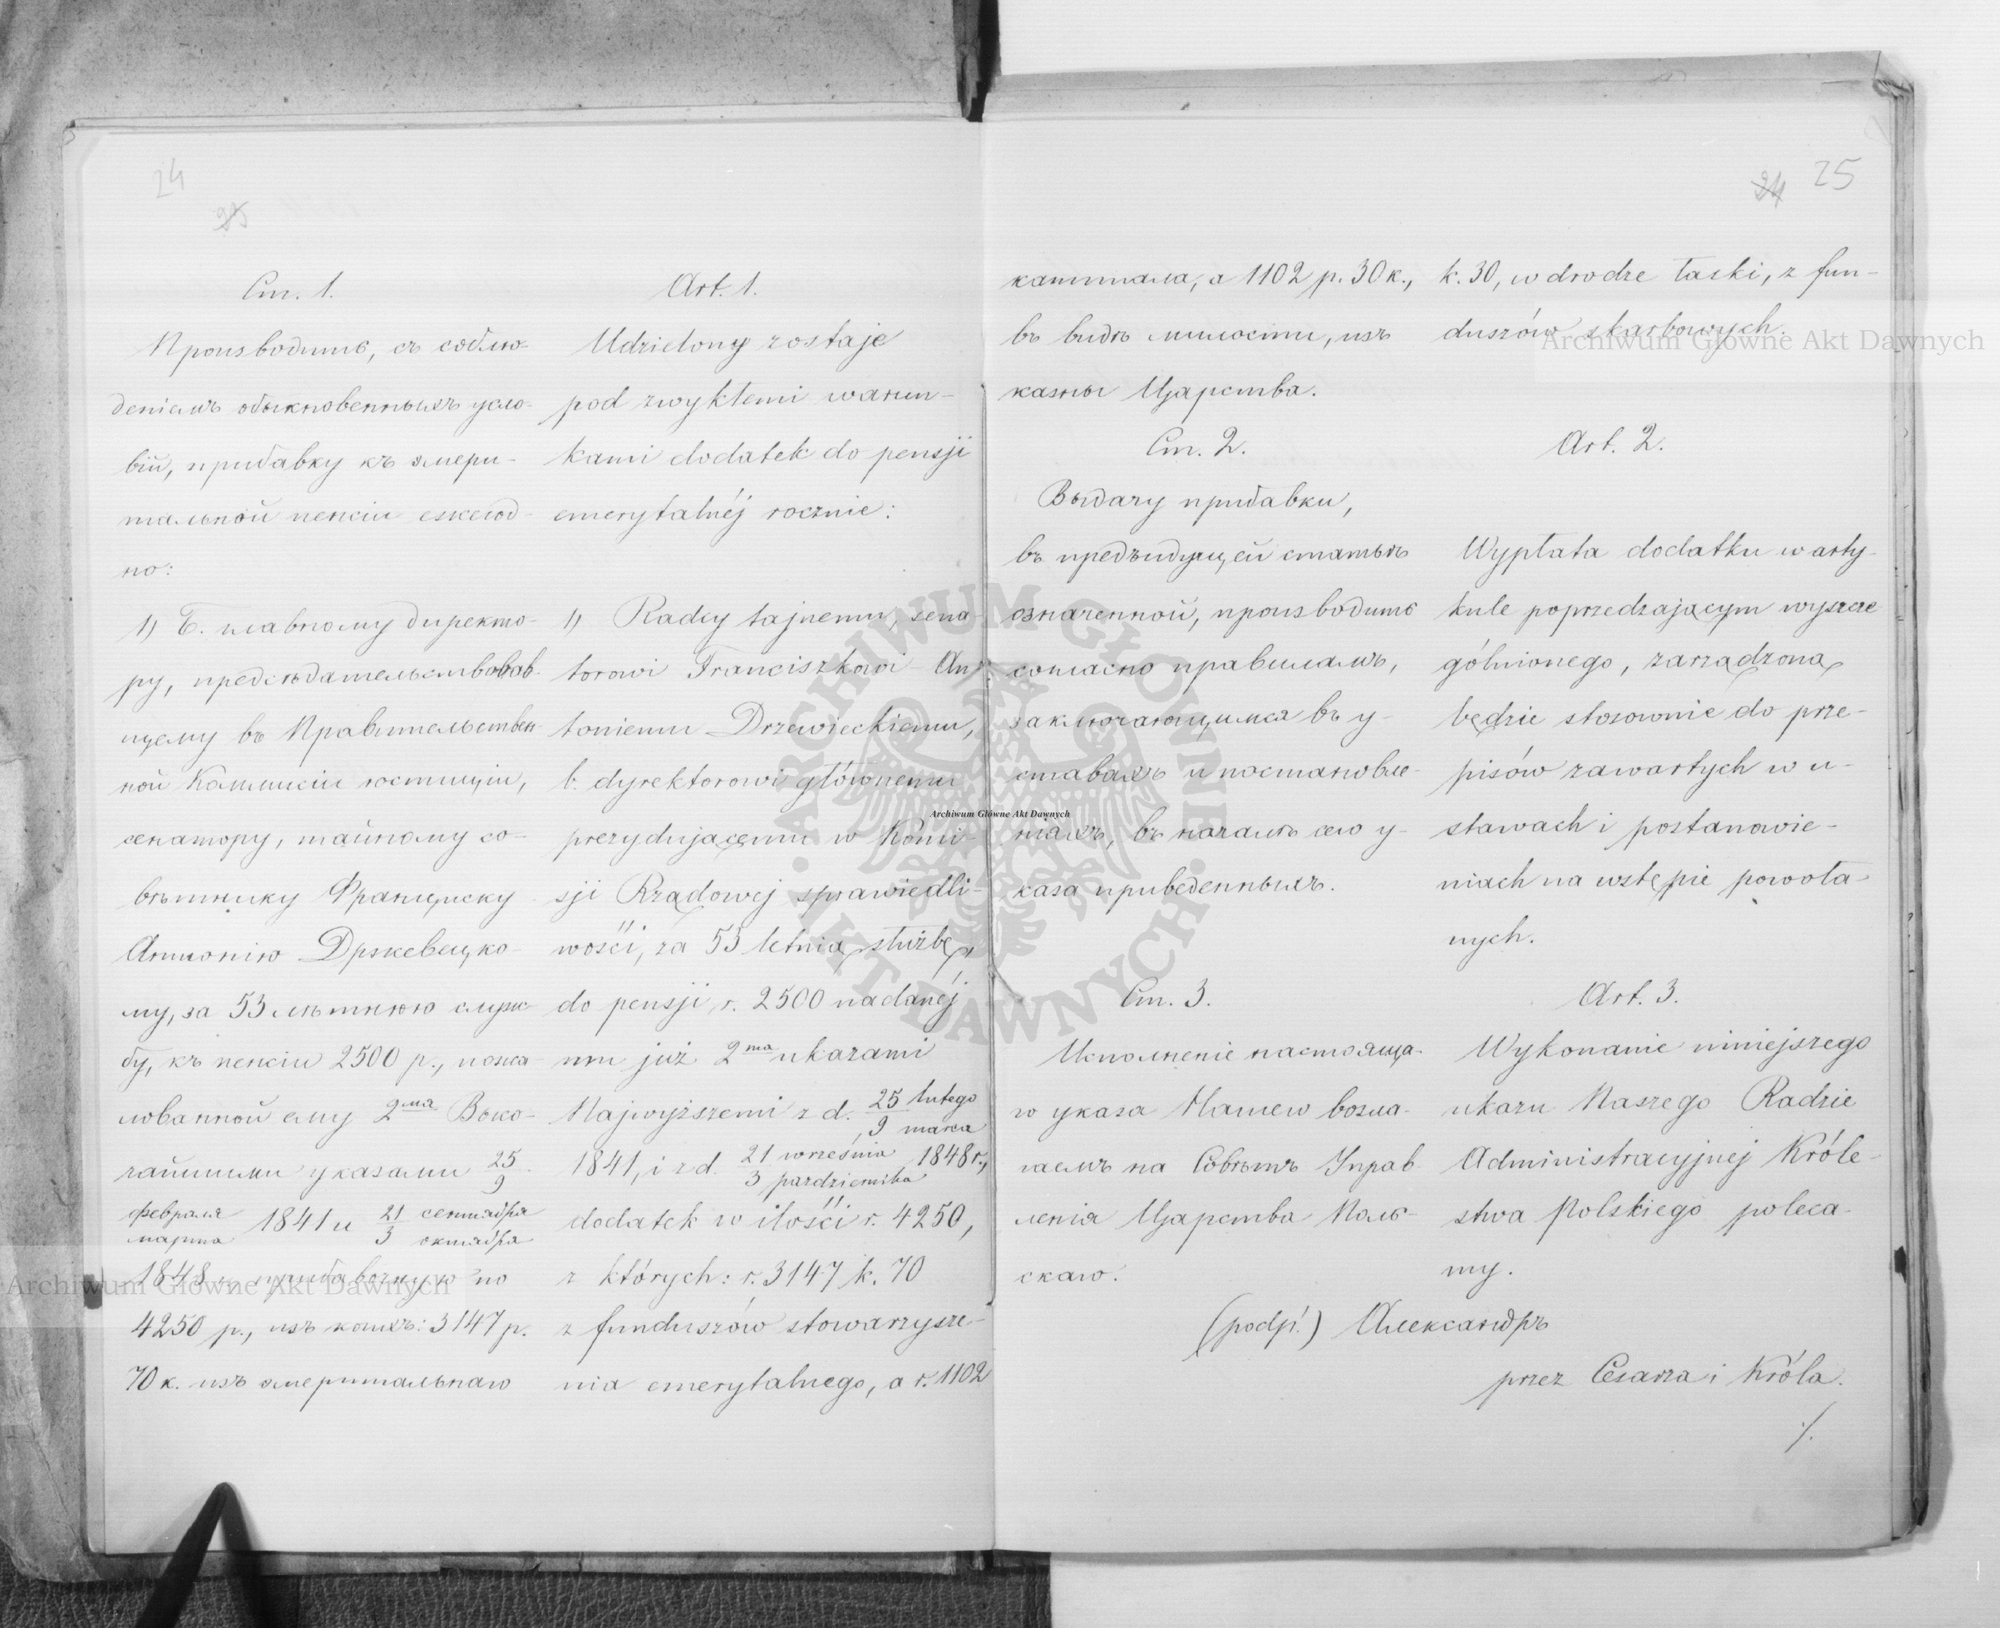 24
23
Ст. 1.
Производить, съ соблю-
деніемъ обыкновенныхъ усло-
вій, прибавку къ эмери-
тальной пенсіи ежегод-
но:
1) Б. главному директо-
ру, предсѣдательствовав-
щему въ Правительствен-
ной Коммисіи юстиціи,
сенатору, тайному со-
вѣтнику Францишку
Антонію Држевецко-
му, за 53 лѣтнюю служ-
бу, къ пенсіи 2500 р., пожа-
лованной ему 2мя Высо-
чайшими указами 25/9
февраля/марта 1841 и 21 сентября/3 октября
1848 г., прибавочную по
4250 р., изъ коихъ: 3147 р.
70 к. изъ эмеритальнаго
Art. 1.
Udzielony zostaje
pod zwykłemi warun-
kami dodatek do pensji
emerytalnéj rocznie:
1) Radcy tajnemu, sena-
torowi Franciszkowi - An-
toniemu Drzewieckiemu,
b. dyrektorowi głównemu
prezydującemu w Komi-
sji Rządowej sprawiedli-
wości, za 53 letnią służbę,
do pensji r. 2500 nadanéj
mu już 2ma ukazami
Najwyższemi z d. 25 lutego/9 marca
1841, i z d. 21 września/3 października 1848 r.,
dodatek w ilości r. 4250,
z których: r. 3147 k. 70
z funduszów stowarzysze-
nia emerytalnego, a r. 1102
24 25
капитала, а 1102 р. 30 к.,
въ видѣ милости, изъ
казны Царства.
Ст. 2.
Выдачу прибавки,
въ предъидущей статьѣ
означенной, производить
согласно правиламъ,
заключающимся въ у-
ставахъ и постановле-
ніяхъ, въ началѣ сего у-
каза приведенныхъ.
Ст. 3.
Исполненіе настояща-
го указа Нашего возла-
гаемъ на Совѣтъ Управ-
ленія Царства Поль-
скаго.
k. 30, w drodze łaski, z fun-
duszów skarbowych.
Art. 2.
Wypłata dodatku w arty-
kule poprzedzającym wyszcze
gólnionego, zarządzoną
będzie stosownie do prze-
pisów zawartych w u-
stawach i postanowie-
niach na wstępie powoła-
nych.
Art. 3.
Wykonanie niniejszego
ukazu Naszego Radzie
Administracyjnej Króle-
stwa Polskiego poleca-
my.
(podp.) Александръ
przez Cesarza i Króla.
./.
Archiwum Główne Akt Dawnych
Archiwum Główne Akt Dawnych
Archiwum Główne Akt Dawnych
ARCHIWUM GŁÓWNE · AKT DAWNYCH ·